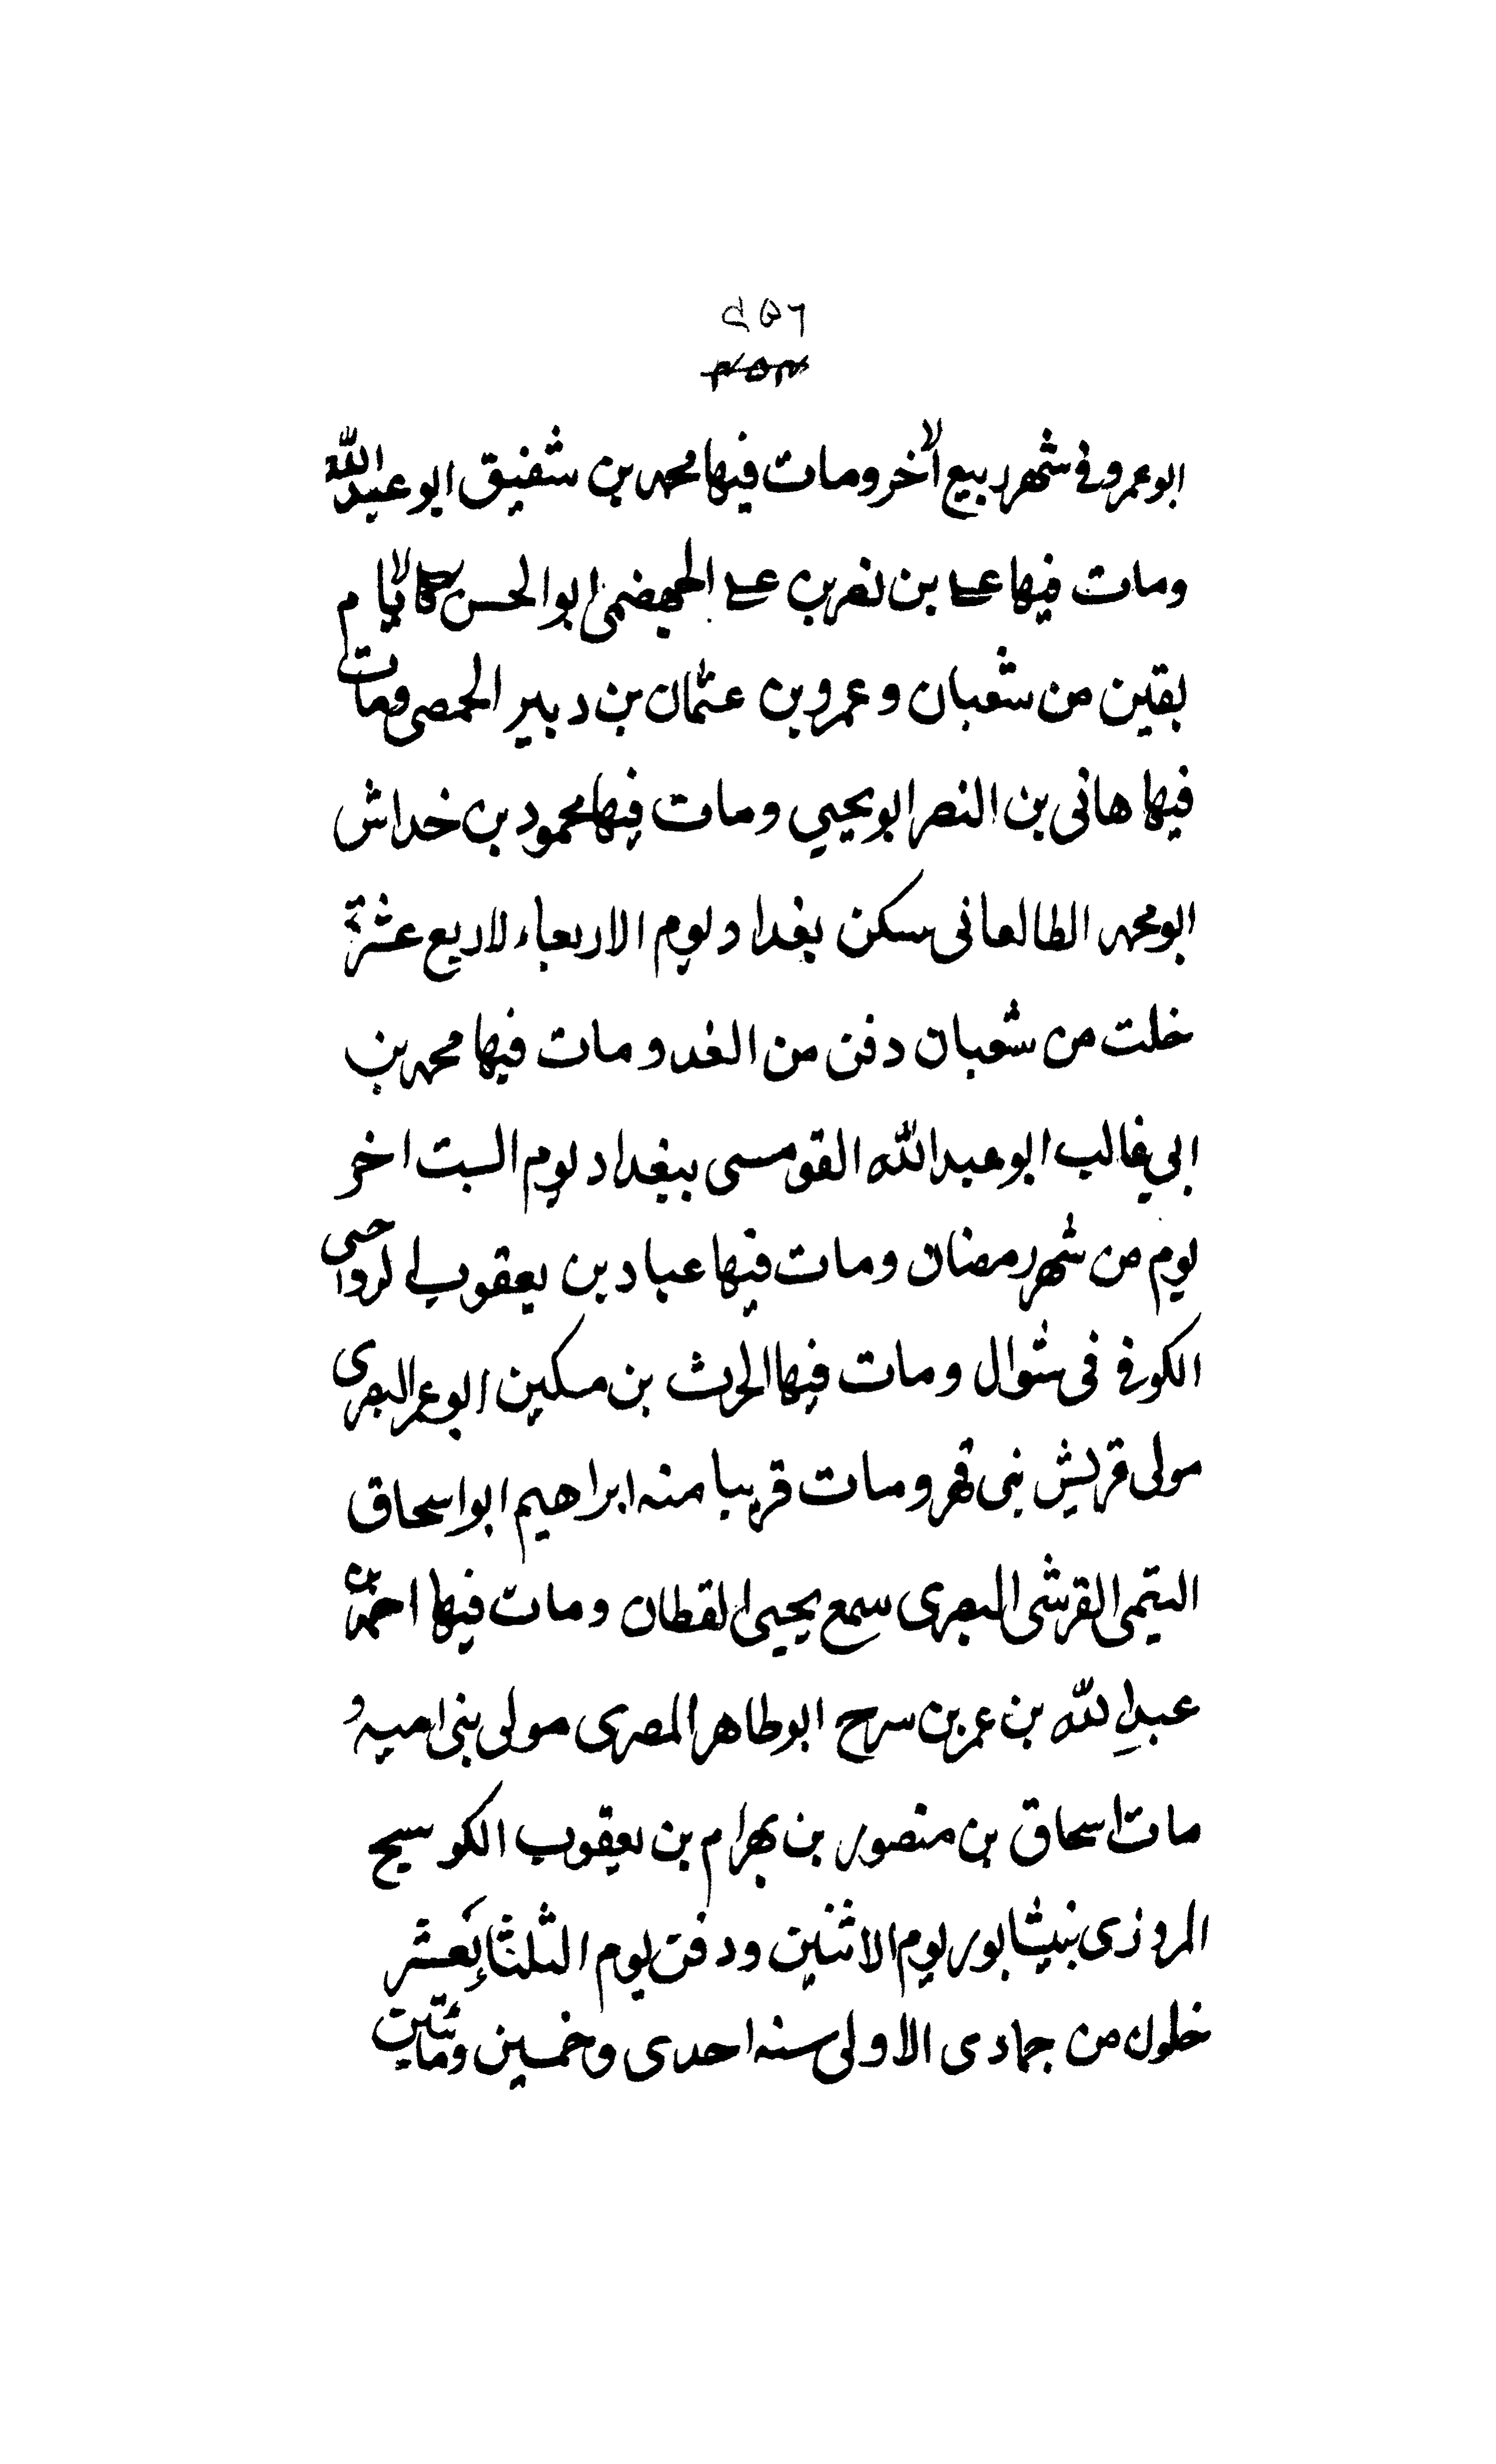 ابو عمرو فى شهر ربيع الاخر ومات فيها محمد بن شفيق ابو عبد الله
ومات فيها على بن نصر بن على الجهضمى ابو الحسن لايام
بقين من شعبان وعمرو بن عثمان بن دبير الحمصى ومات
فيها هانى بن النصر ابو يحيي ومات فيها محمود بن خداش
ابو محمد الطالعانى سكن بغداد يوم الاربعاء لاربع عشرة
خلت من شعبان دفن من الغد ومات فيها محمد بن
ابي غالب ابو عبد الله القومسى ببغداد يوم السبت اخر
يوم من شهر رمضان ومات فيها عباد بن يعقوب الرواجنى
الكوفى فى شوال ومات فيها الحرث بن مسكين ابو عمر البصرى
مولى قريش بنى فهر ومات قريبا منه ابراهيم ابو اسحاق
التيمى القرشى البصرى سمع يحيى القطان ومات فيها احمد بن
عبد الله بن عمر بن سرح ابو طاهر المصرى مولى بنى اميه و
مات اسحاق بن منصور بن بهرام بن يعقوب الكوسج
المروزى بنيشابور يوم الاثنين ودفن يوم الثلثاء لعشر
خلون من جمادى الاولى سنه احدى وخمسين ومائتين